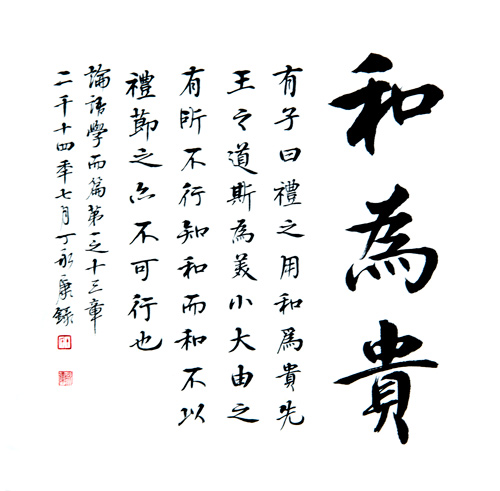 和為貴
有子曰禮之用和為貴先
王之道斯為美小大由之
有所不行知和而和不以
禮節之亦不可行也
論語學而篇第一之十三章
二千十四年七月丁永康錄